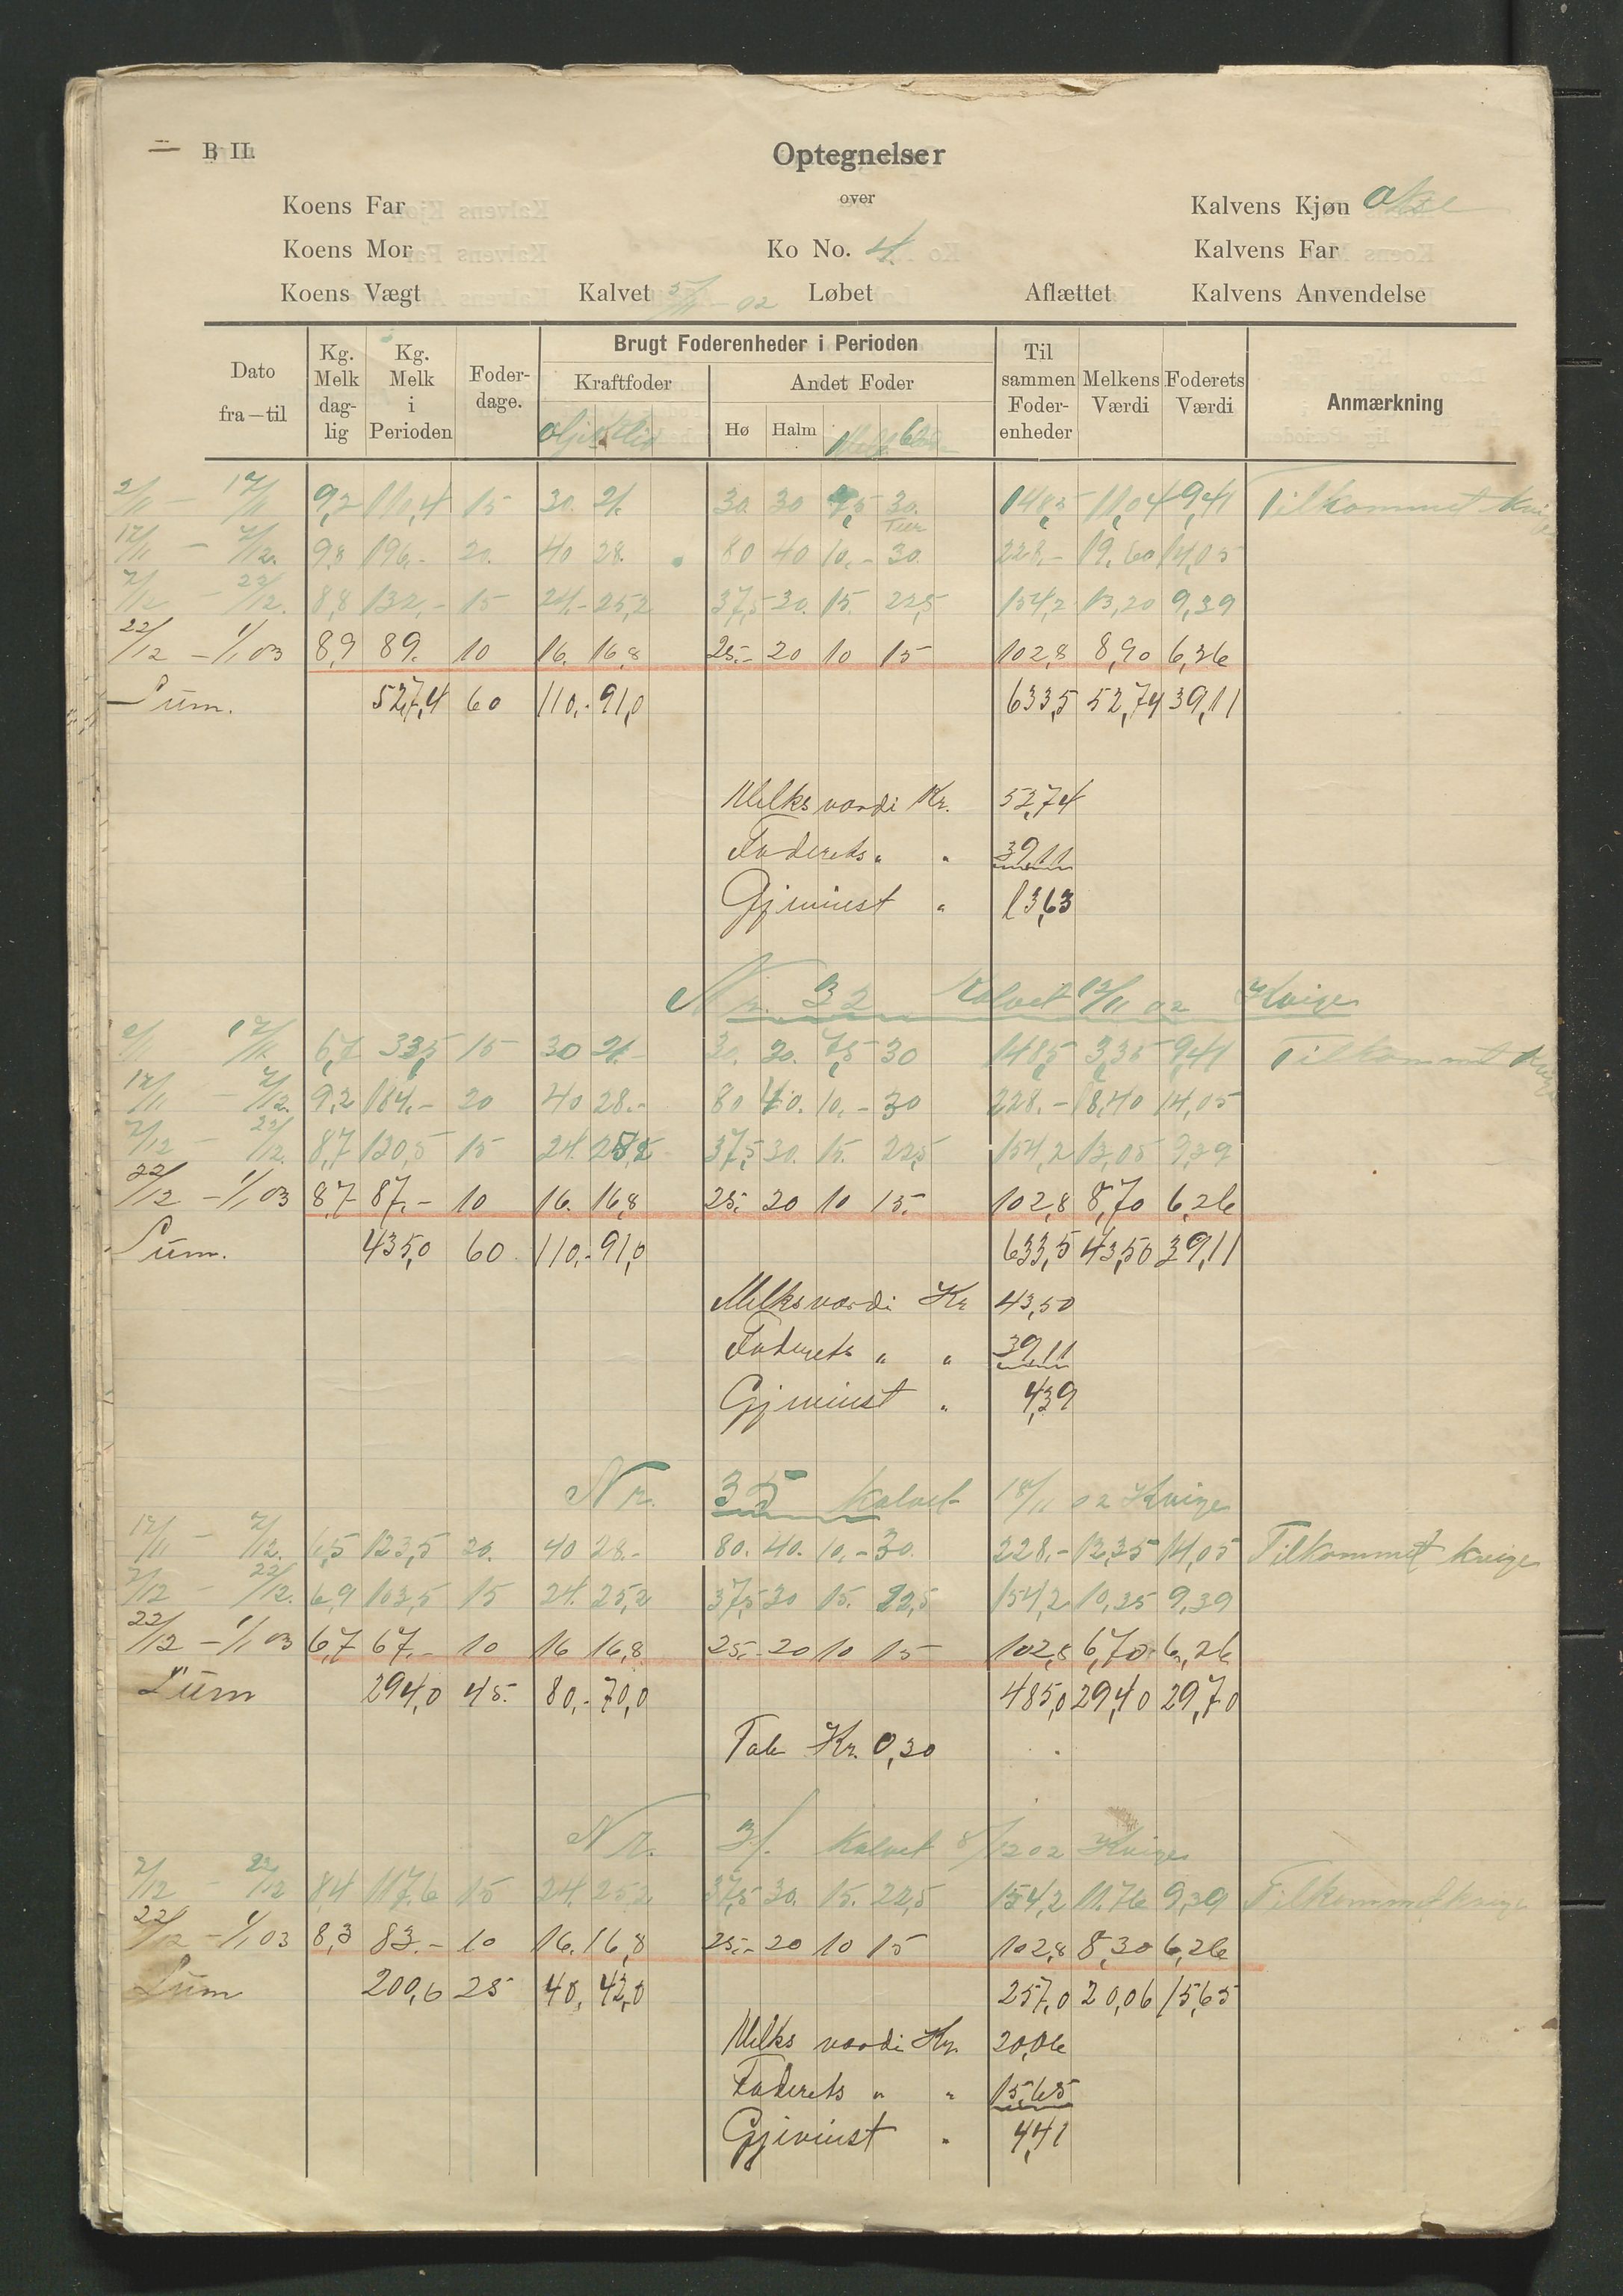 B II.
Optegnelser
over
Koens Far
Kalvens Kjøn Okse
Koens Mor
Ko No. 4.
Kalvens Far
Koens Vægt
Kalvet 5/11 - 02
Løbet
Aflættet
Kalvens Anvendelse
Dato fra—til
Kg. Melk dag- lig
Kg. Melk i Perioden
Foder- dage.
Brugt Foderenheder i Perioden
Kraftfoder
Andet Foder
Hø
Halm
Til sammen Foder- enheder
Melkens Værdi
Foderets Værdi
Anmærkning
2/11 - 17/11 9,2 110,4 15 30. 21. 30. 30 7,5 30. 148,5 11,04 9,41 Tilkommet Kvige
17/11 - 7/12. 9,8 196,- 20. 40 28. 80 40 10,- 30. 228,- 19,60 14,05
7/12 - 22/12. 8,8 132,- 15 24,- 25,2 37,5 30. 15. 22,5 154,2 13,20 9,39
22/12 - 1/1 03 8,9 89. 10 16. 16,8 25,- 20 10 15 102,8 8,90 6,26
Sum. 527,4 60 110,- 91,0 633,5 52,74 39,11
Melks værdi Kr. 52,74
Foderets " " 39,11
Gjevinst " 13,63
Nr. 32 Kalvet 12/11 02 Kvige
2/11 17/11 6,7 33,5 15 30 21.- 30. 30. 7,5 30 148,5 3,35 9,41 Tilkommet Kvige
17/11 - 7/12. 9,2 184,- 20 40 28.- 80 40. 10,- 30 228.- 18,40 14,05
7/12 - 22/12. 8,7 130,5 15 24. 25,2 37,5 30. 15. 22,5 154,2 13,05 9,39
22/12 - 1/1 03 8,7 87,- 10 16. 16,8 25. 20 10 15. 102,8 8,70 6,26
Sum. 435,0 60 110,- 91,0 633,5 43,50 39,11
Melksværdi Kr 43,50
Foderets " " 39,11
Gjevinst " 4,39
Nr. 35 Kalvet 18/11 02 Kvige
17/11 - 7/12. 6,5 123,5 20. 40 28.- 80. 40. 10,- 30. 228.- 12,35 14,05 Tilkommet kvige
7/12 - 22/12. 6,9 103,5 15 24. 25,2 37,5 30 15. 22,5 154,2 10,35 9,39
22/12 - 1/1 03 6,7 67,- 10 16 16,8 25,- 20 10 15 102,8 6,70 6,26
Sum 294,0 45. 80,- 70,0 485,0 29,40 29,70
Tab Kr. 0,30
Nr. 31. Kalvet 8/12 02 Kvige
7/12 - 22/12 8,4 117,6 15 24. 25,2 37,5 30. 15. 22,5 154,2 11.76 9,39 Tilkommet kvige
22/12 - 1/1 03 8,3 83.- 10 16. 16,8 25,- 20 10 15 102,8 8,30 6,26
Sum 200,6 25 40, 42,0 257,0 20,06 15,65
Melks værdi Kr. 20,06
Foderets " " 15,65
Gjevinst " 4,41